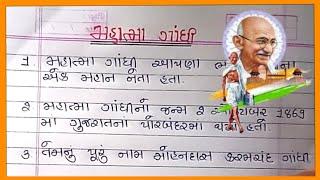 મહાત્મા ગાંધી
1. મહાત્મા ગાંધી આપણા ના
એક મહાન નેતા હતા.
2 મહાત્મા ગાંધીનો જન્મ 2 ઓક્ટોબર 1869
માં ગુજરાતના પોરબંદરમાં થયો હતો.
3 તેમનું પૂરું નામ મોહનદાસ કરમચંદ ગાંધી